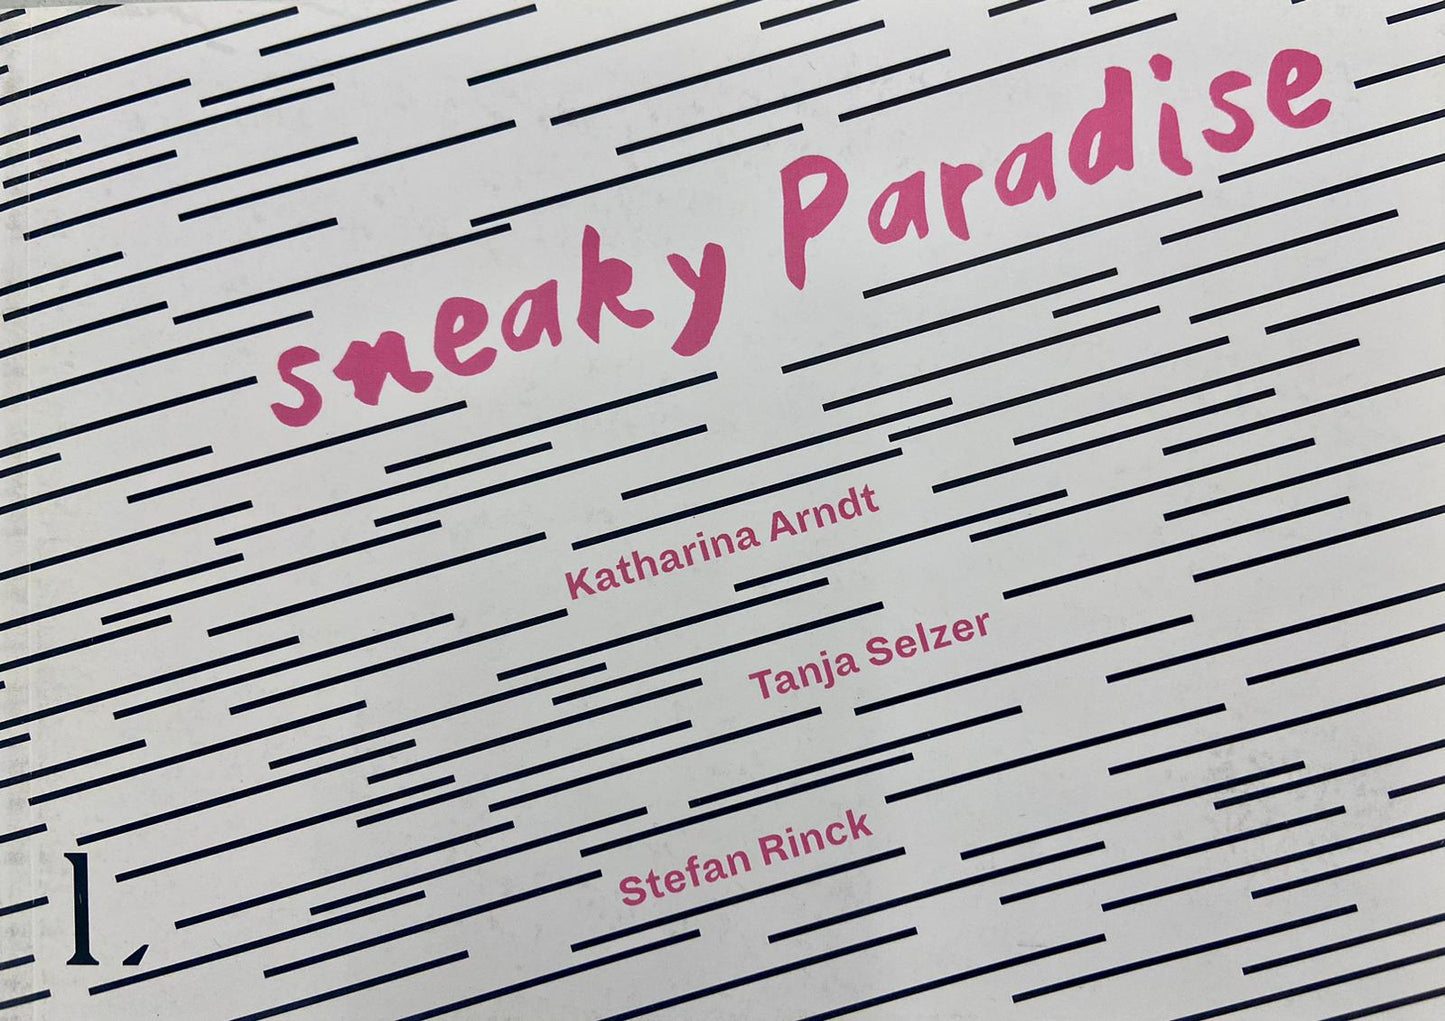 sneaky Paradise
Katharina Arndt
Tanja Selzer
Stefan Rinck
l,